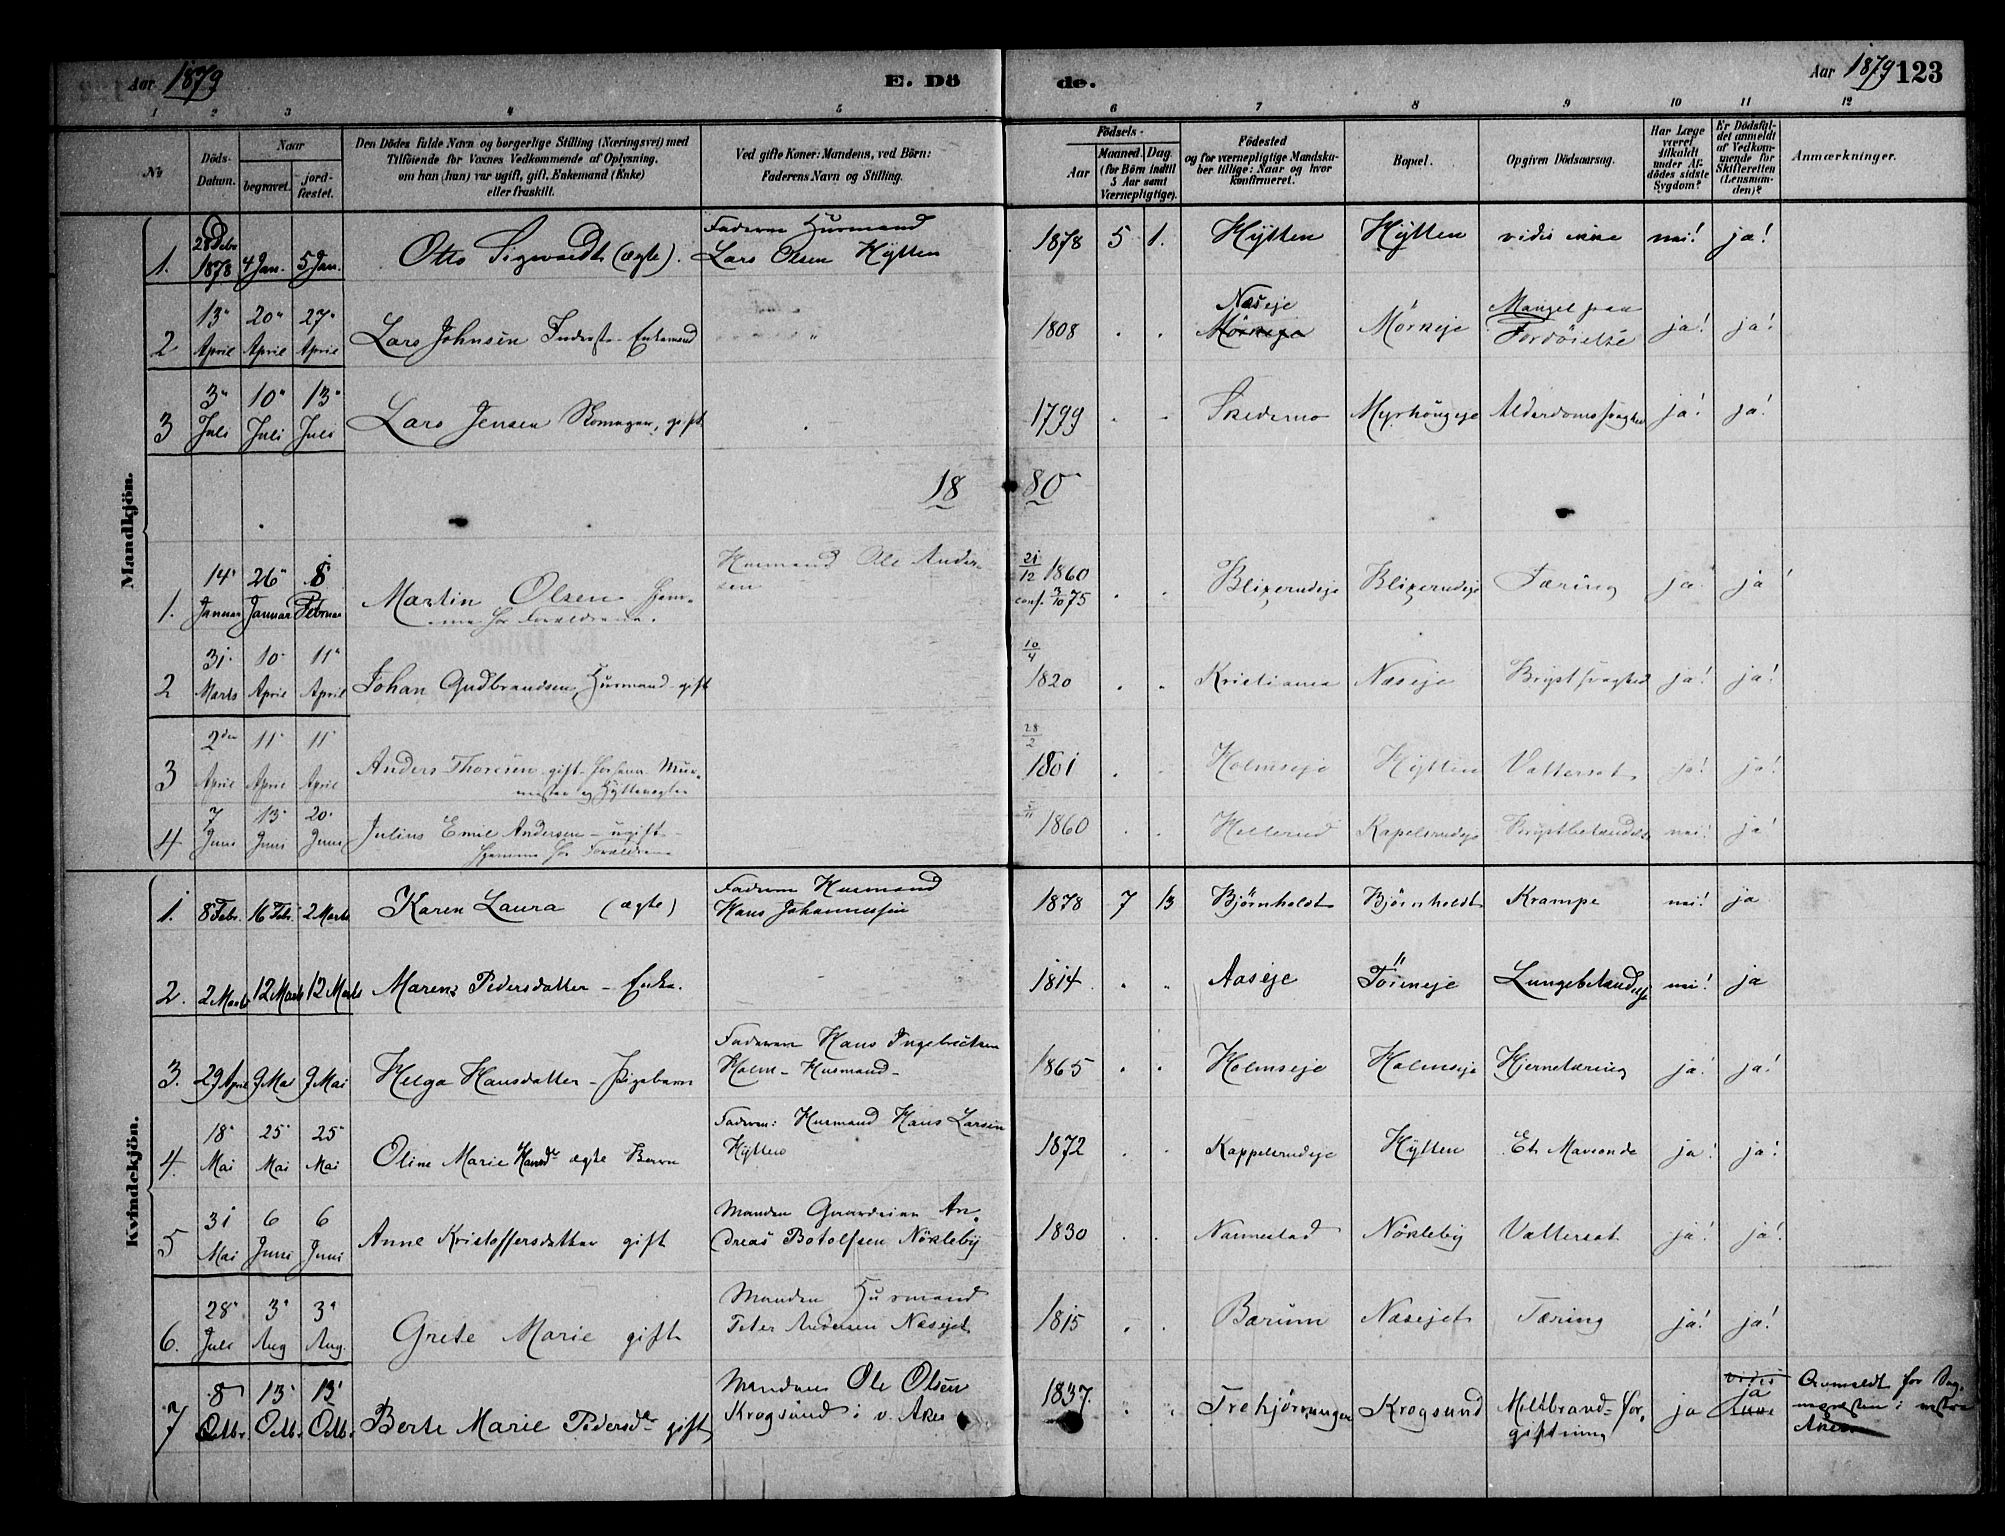 Aar 1879 E. Dö de. Aar 1879 123
1 2 3 4 5 6 7 8 9 10 11 12
No
Döds-Datum.
Naar
begravet.
jord-fæstet.
Den Dödes fulde Navn og borgerlige Stilling (Næringsvei) med
Tilföiende for Voxnes Vedkommende af Oplysning,
om han (hun) var ugift, gift, Enkemand (Enke)
eller fraskilt.
Ved gifte Koner: Mandens, ved Börn:
Faderens Navn og Stilling.
Födsels-
Aar
Maaned. Dag
(for Börn indtil
5 Aar samt
Værnepligtige).
Födested
og for værnepligtige Mandska-
ber tillige: Naar og hvor
konfirmeret.
Bopæl.
Opgiven Dödsaarsag.
Har Læge
været
tilkaldt
under Af-
dödes sidste
Sygdom?
Er Dödsfal-
det anmeldt
af Vedkom-
mende for
Skifteretten
(Lensman-
den)?
Anmærkninger.
Mandkjön.
Faderen Husmand
1. 28 Debr 1878 4 Jan. 5 Jan. Otto Sigwardt (ægte). Lars Olsen Hytten 1878 5 1. Hytten Hytten vides ikke nei! ja!
2 13 April 20 April 27 April Lars Johnsen Inderst- Enkemand 1808 Næseje Mörkeje Mangel paa Fordöielse ja! ja!
3 3 Juli 10 Juli 13 Juli Lars Jensen gift 1799 Skedsmo Alderdomssvaghed ja! ja!
18 80
1. 14 Januar 26 Januar 8 Februar Martin Olsen hjem-
me hos Forældrene.
Husmand Ole Ander-
sen
21/12 1860
conf. 3/10 75
Blixerudeje Blixerudeje Tæring ja ja
2 31 Marts 10 April 11 April Johan Gudbrandsen, Husmand gift 10/4 1820 Kristiania Næseje Brystsvaghed ja! ja!
3 2den April 11 April 11 April Anders Thoresen gift forhenv. Mur-
mester og
28/2 1801 Holmseje Hytten Vattersot ja! ja!
4 7 Juni 13 Juni 20 Juni Julius Emil Andersen - ugift -
hjemme hos Forældrene
1860 Hellerud Kapelerudeje Brystbetændelse nei! ja!
Kvindekjön.
1. 8 Febr. 16 Febr 2 Marts Karen Laura (ægte)
Faderen Husmand
Hans Johannessen
1878 7 13 Bjørnholdt Bjørnholdt Krampe nei! ja
2. 2 Marts 12 Marts 12 Marts Maren Pedersdatter - Enke. 1814 Aaseje Töieneje Lungebetændelse nei! ja
3. 29 April 9 Mai 9 Mai Helga Hansdatter - Pigebarn
Faderen Hans Ingebretsen
Holm - Husmand -
1865 Holmseje Holmseje Hjernetæring ja! ja!
4. 18 Mai 25 Mai 25 Mai Oline Marie Hansdr ægte Barn
Faderen: Husmand Hans Larsen
Hytten
1872 Kappelerudeje Hytten ja! ja!
5 31 Mai 6 Juni 6 Juni Anne Kristoffersdatter gift
Manden Gaardeier An-
dreas Botolfsen Nökleby
1830 Nannestad Nökleby Vattersot ja! ja!
6. 28 Juli 3 Aug 3 Aug. Grete Marie gift
Manden Husmand
Peter Andersen Næsejet
1815 Bærum Næsejet Tæring ja! ja!
7 8 Octbr. 13 Octbr. 13 Octbr. Berte Marie Pedersdr gift
Manden Ole Olsen
Krogsund i v. Aker
1837. Trehjörningen Krogsund Miltbrand-for-
giftning
ja ja
Anmeldt for
i vestre
Aker